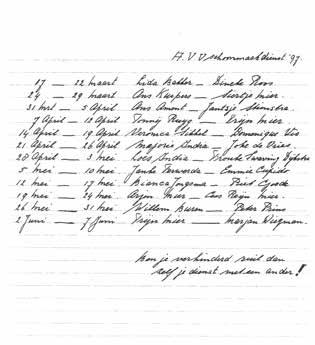 A.V.V. schoonmaakdienst '97.
17 — 22 maart Lida Bakker — Dineke Roos
24 — 29 maart Ans Kuipers — Sietzje Mier.
31 mrt — 5 April Ans Amont — Jantsje
7 April — 12 April Tonny — Trijn Mier
14 April — 19 April Veronica — Domenique Vos
21 April — 26 April Marjorie Andrea — Joke de Vries.
28 April — 3 mei Loes Andrea — Froukje Dijkstra
5 mei — 10 mei Janke Terwerda — Emmie Cupido
12 mei — 17 mei Bianca Jongsma — Piet
19 mei — 24 mei Arjen Mier — Cees Mier.
26 mei — 31 mei Willem — Prins
2 Juni — 7 Juni Trijn Mier — Marjan Wiegman.
Ben je verhinderd ruil dan
zelf je dienst met een ander!